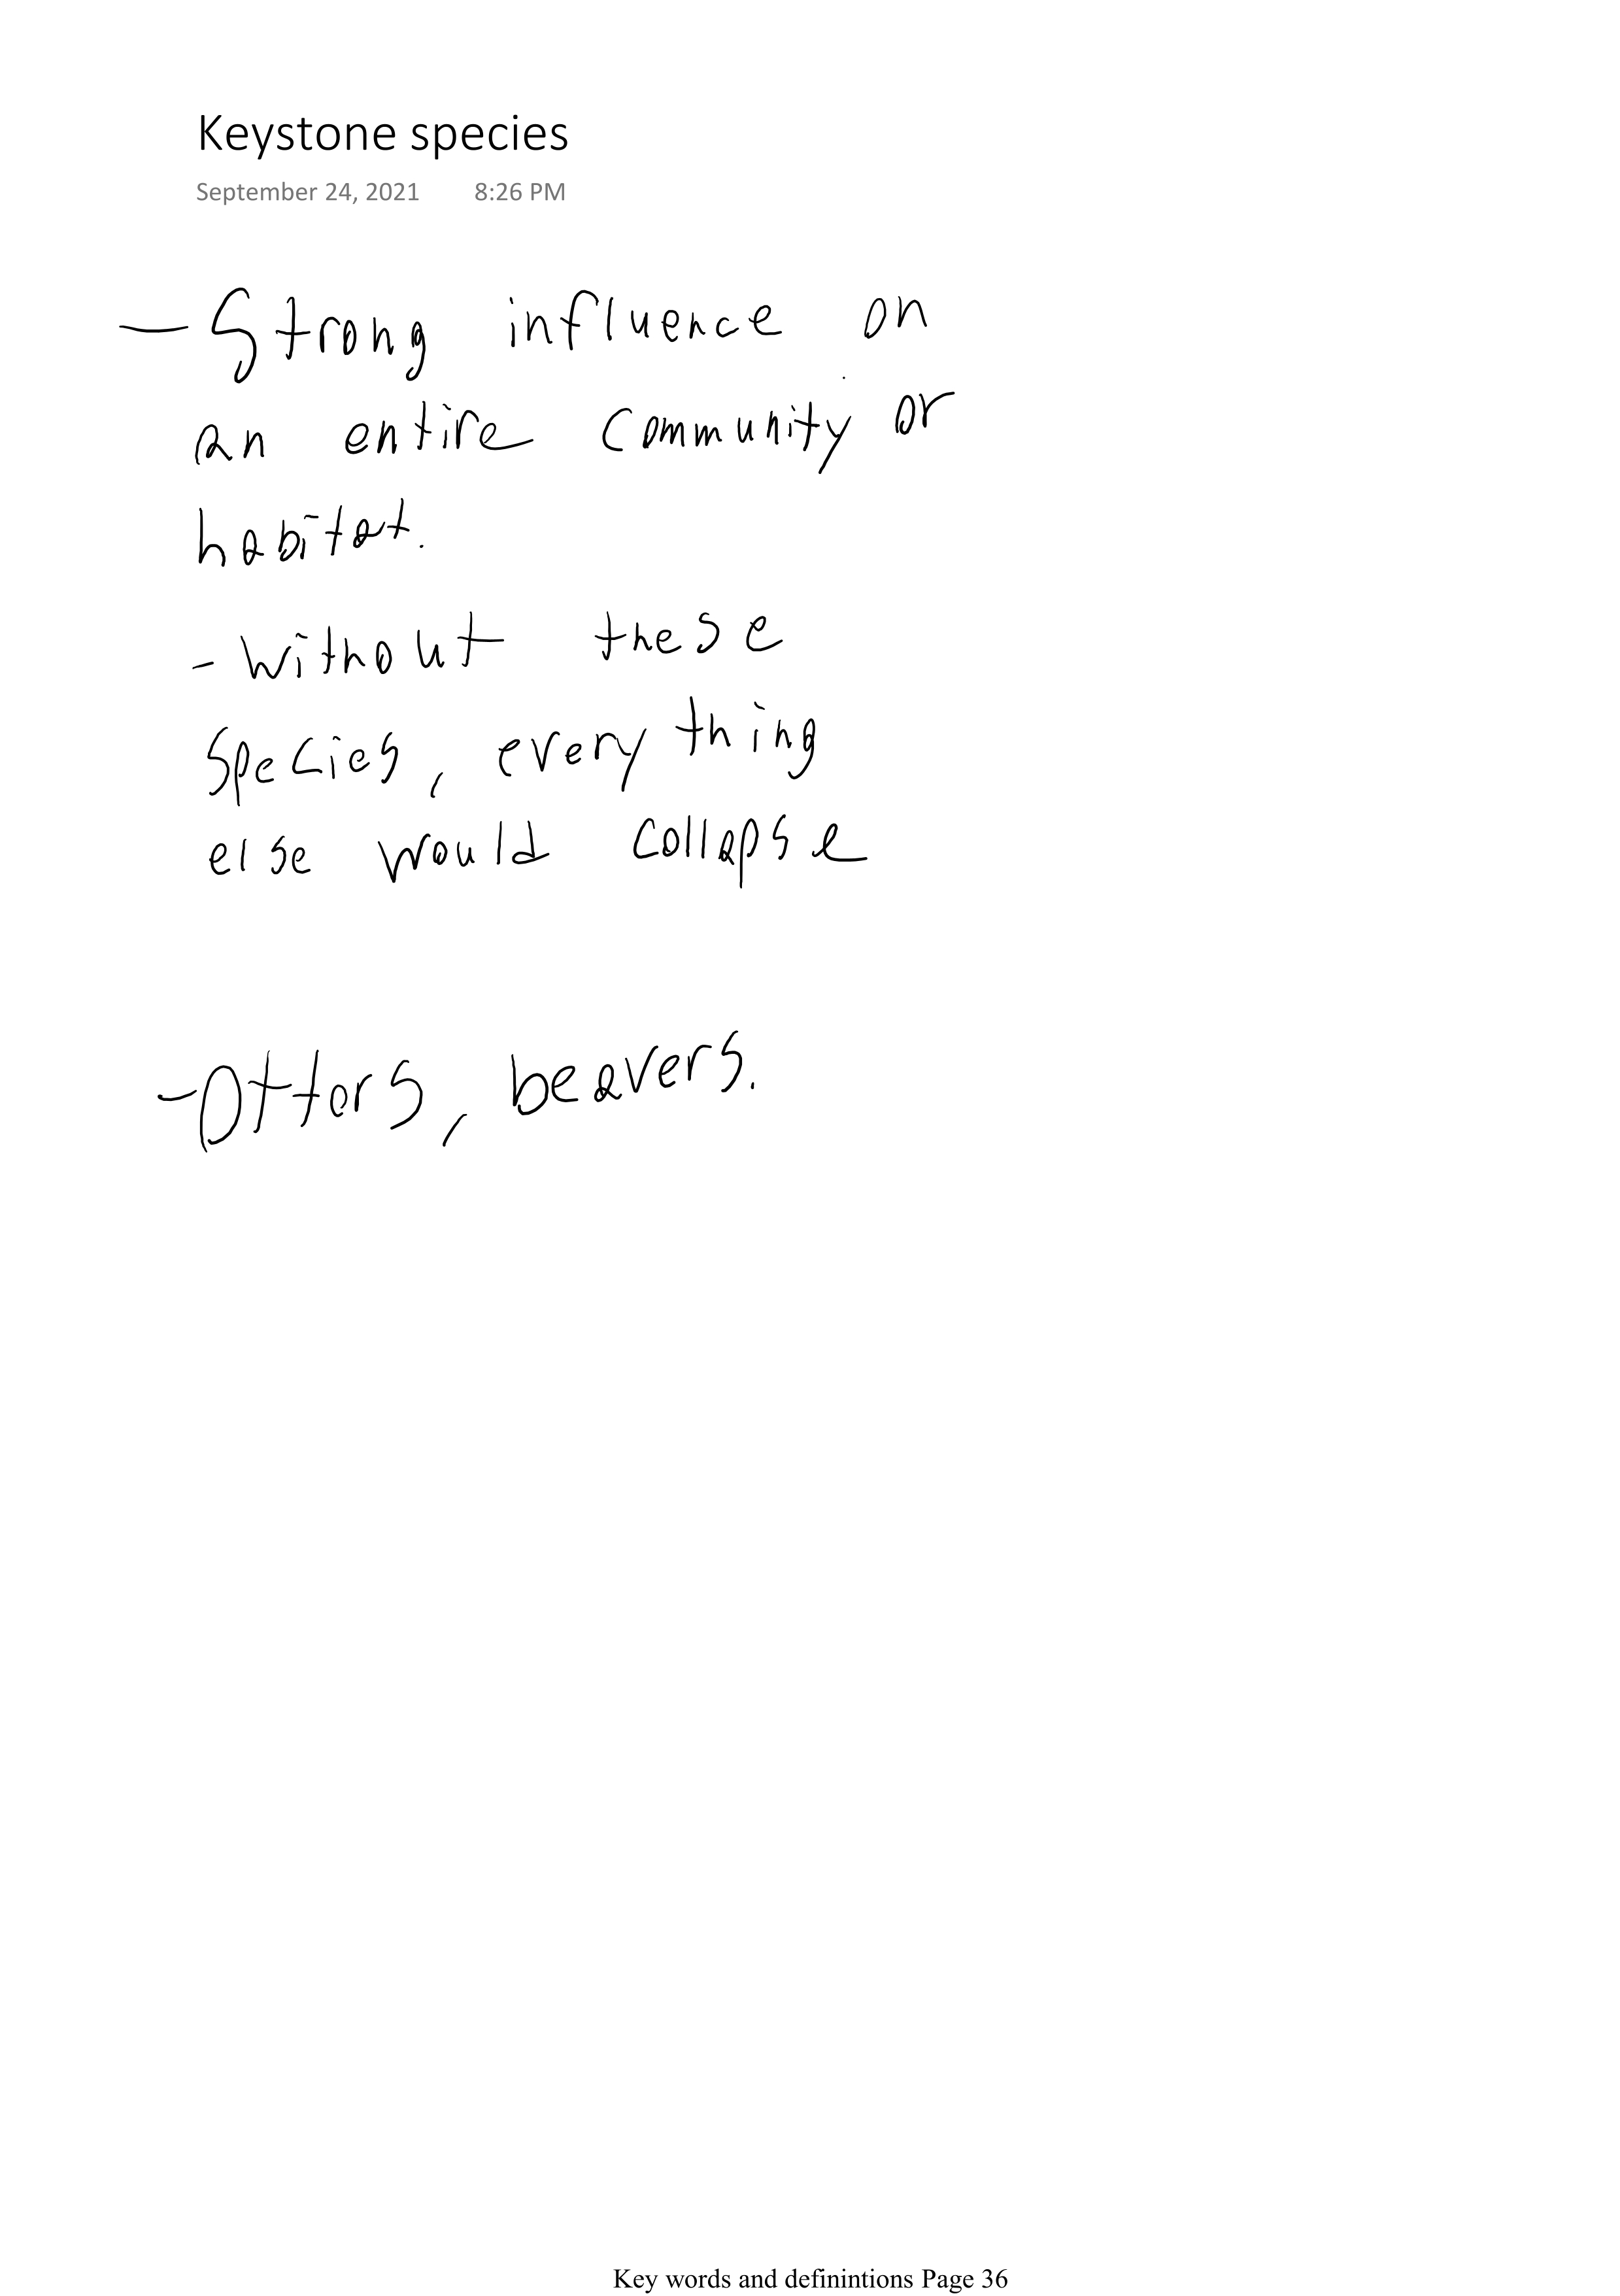 Keystone species
September 24, 2021 8:26 PM
- Strong influence on
an entire community or
habitat.
- Without these
species, everything
else would collapse
- Otters, beavers.
Key words and definintions Page 36